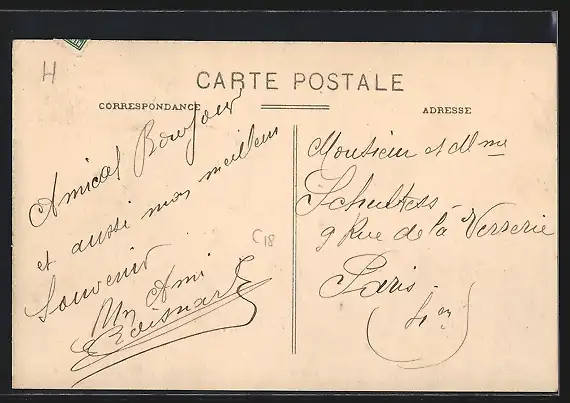 H
CARTE POSTALE
CORRESPONDANCE
ADRESSE
Amical Bonjour
et aussi mon meilleur
Souvenir
Un Ami
C18
Monsieur et Mme
Schultess
9 Rue de la Verrerie
Paris
(4em)